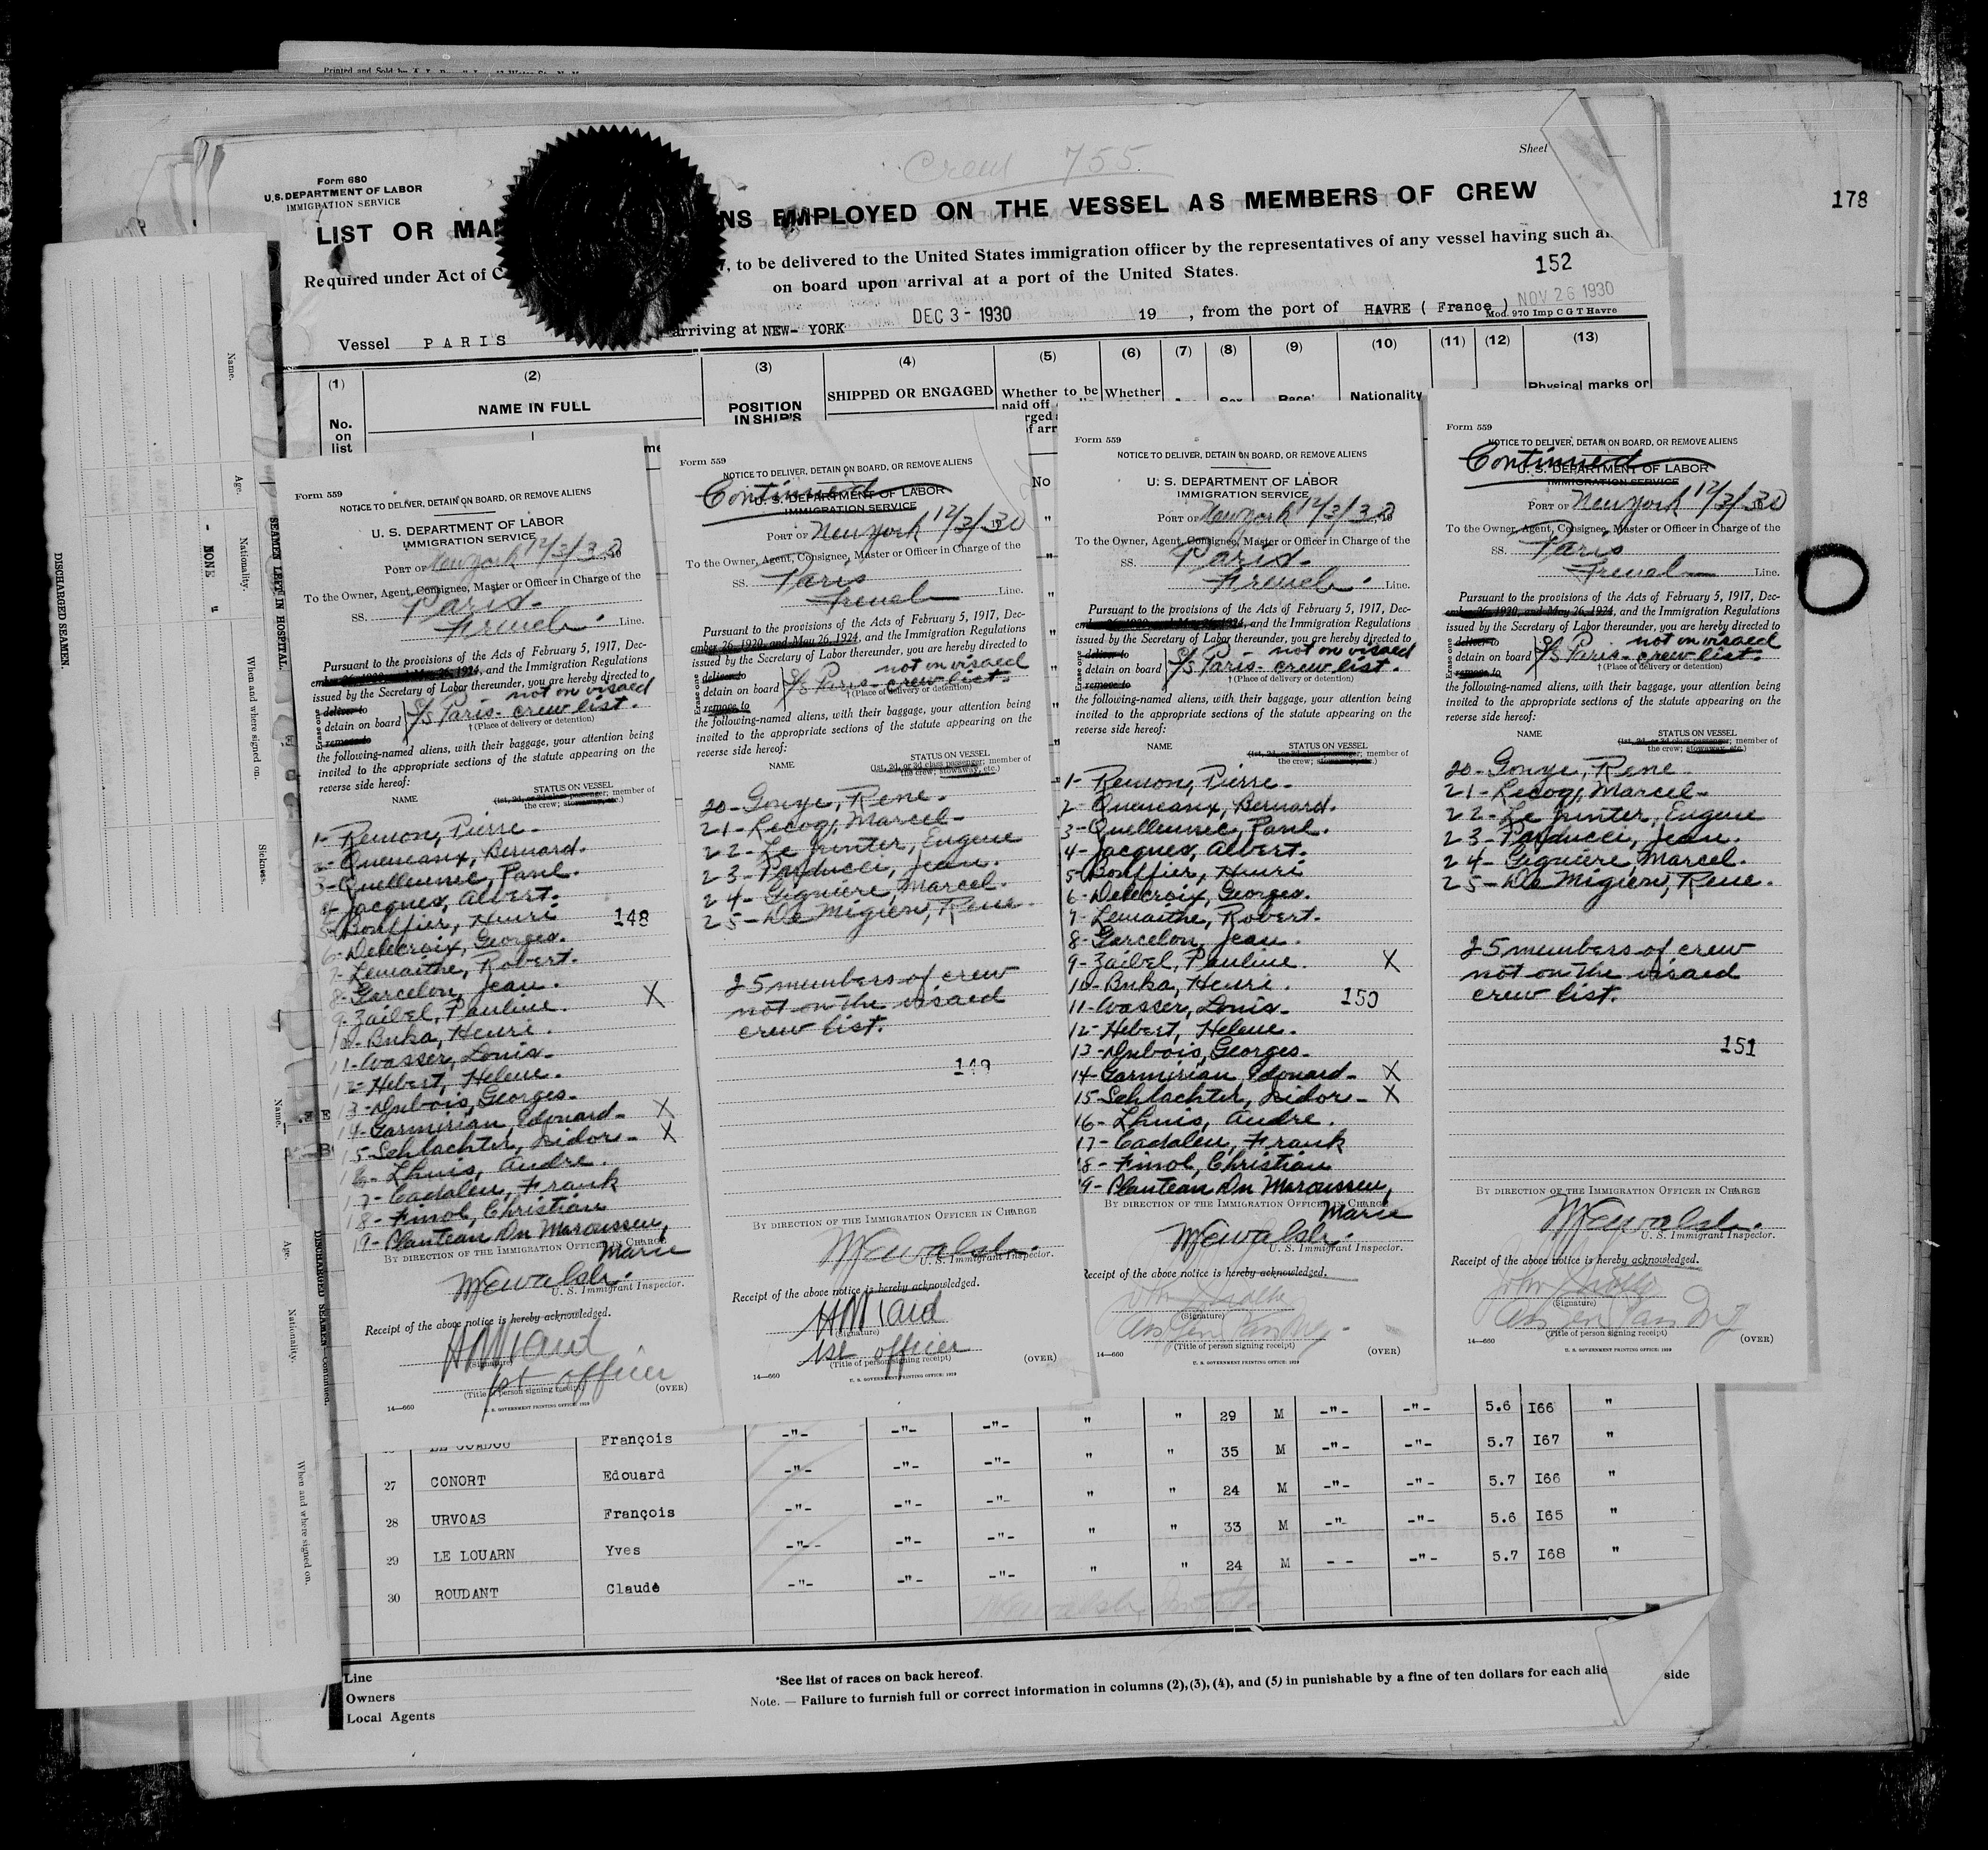 Printed and Sold by
Form 680
U.S. DEPARTMENT OF LABOR
IMMIGRATION SERVICE
Crew 755.
Sheet
178
LIST OR MA NS EMPLOYED ON THE VESSEL AS MEMBERS OF CREW
Required under Act of C , to be delivered to the United States immigration officer by the representatives of any vessel having such
on board upon arrival at a port of the United States.
152
Vessel PARIS arriving at NEW-YORK DEC 3 - 1930 19 , from the port of HAVRE ( France ) NOV 26 1930
Mod. 970 Imp C G T Havre
(1) (2) (3) (4) (5) (6) (7) (8) (9) (10) (11) (12) (13)
No. on list
NAME IN FULL
POSITION IN SHIP'S
SHIPPED OR ENGAGED
Whether to be
paid off
Whether
Sex
Race
Nationality
Physical marks or
No
Name.
Age.
Nationality.
When and where signed on.
Sickness.
- NONE "
SEAMEN LEFT IN HOSPITAL.
DISCHARGED SEAMEN
Name.
Age.
Nationality.
When and where signed on.
DISCHARGED SEAMEN continued.
Form 559
NOTICE TO DELIVER, DETAIN ON BOARD, OR REMOVE ALIENS
U. S. DEPARTMENT OF LABOR
IMMIGRATION SERVICE
PORT OF New York 12/3/30
To the Owner, Agent, Consignee, Master or Officer in Charge of the
SS. Paris.
French. Line.
Pursuant to the provisions of the Acts of February 5, 1917, Dec-
ember 26, 1920, and May 26, 1924, and the Immigration Regulations
issued by the Secretary of Labor thereunder, you are hereby directed to
Erase one
deliver to
detain on board
remove to
S/S Paris - not on visaed crew list.
† (Place of delivery or detention)
the following-named aliens, with their baggage, your attention being
invited to the appropriate sections of the statute appearing on the
reverse side hereof:
NAME
STATUS ON VESSEL
(1st, 2d, or 3d class passenger; member of
the crew; stowaway, etc.)
1- Remon, Pierre.
2- Quemeaux, Bernard.
3- Quellennec, Paul.
4- Jacques, Albert.
5- Bouffier, Henri
148
6- Delecroix, Georges.
7- Lemaithe, Robert.
8- Garcelon, Jean.
9- Zaibel, Pauline. X
10- Buka, Henri.
11- Wasser, Louis-
12- Hebert, Helene.
13- Dubois, Georges-
14- Garmirian, Edouard- X
15- Schlachter, Isidor- X
16- Lhuis, Andre.
17- Cadalen, Frank
18- Finol, Christian
19- Planteau Du Maroussem,
Marie
BY DIRECTION OF THE IMMIGRATION OFFICER IN CHARGE
McWalsh.
U. S. Immigrant Inspector.
Receipt of the above notice is hereby acknowledged.
(Signature)
1st officer
(Title of person signing receipt)
(OVER)
14—660
U. S. GOVERNMENT PRINTING OFFICE: 1929
Form 559
NOTICE TO DELIVER, DETAIN ON BOARD, OR REMOVE ALIENS
Continued
U. S. DEPARTMENT OF LABOR
IMMIGRATION SERVICE
PORT OF New York 12/3/30
To the Owner, Agent, Consignee, Master or Officer in Charge of the
SS. Paris
French Line.
Pursuant to the provisions of the Acts of February 5, 1917, Dec-
ember 26, 1920, and May 26, 1924, and the Immigration Regulations
issued by the Secretary of Labor thereunder, you are hereby directed to
Erase one
deliver to
detain on board
remove to
S/S Paris - not on visaed crew list.
† (Place of delivery or detention)
the following-named aliens, with their baggage, your attention being
invited to the appropriate sections of the statute appearing on the
reverse side hereof:
NAME
STATUS ON VESSEL
(1st, 2d, or 3d class passenger; member of
the crew; stowaway, etc.)
20- Gouye, Rene.
21- Lecoq, Marcel-
22- Le Jninter, Eugene
23- Parducci, Jean.
24- Giguiere, Marcel.
25- De Migieu, Rene.
25 members of crew
not on the visaed
crew list.
149
BY DIRECTION OF THE IMMIGRATION OFFICER IN CHARGE
McWalsh.
U. S. Immigrant Inspector.
Receipt of the above notice is hereby acknowledged.
(Signature)
1st officer
(Title of person signing receipt)
(OVER)
14—660
U. S. GOVERNMENT PRINTING OFFICE: 1929
Form 559
NOTICE TO DELIVER, DETAIN ON BOARD, OR REMOVE ALIENS
U. S. DEPARTMENT OF LABOR
IMMIGRATION SERVICE
PORT OF New York 12/3/30
To the Owner, Agent, Consignee, Master or Officer in Charge of the
SS. Paris.
French. Line.
Pursuant to the provisions of the Acts of February 5, 1917, Dec-
ember 26, 1920, and May 26, 1924, and the Immigration Regulations
issued by the Secretary of Labor thereunder, you are hereby directed to
Erase one
deliver to
detain on board
remove to
S/S Paris - not on visaed crew list.
† (Place of delivery or detention)
the following-named aliens, with their baggage, your attention being
invited to the appropriate sections of the statute appearing on the
reverse side hereof:
NAME
STATUS ON VESSEL
(1st, 2d, or 3d class passenger; member of
the crew; stowaway, etc.)
1- Remon, Pierre-
2- Quemeaux, Bernard.
3- Quellennec, Paul.
4- Jacques, Albert.
5- Bouffier, Henri
6- Delecroix, Georges.
7- Lemaithe, Robert.
8- Garcelon, Jean.
9- Zaibel, Pauline. X
10- Buka, Henri.
11- Wasser, Louis-
150
12- Hebert, Helene.
13- Dubois, Georges-
14- Garmirian, Edouard- X
15- Schlachter, Isidor- X
16- Lhuis, Andre.
17- Cadalen, Frank
18- Finol, Christian
19- Planteau Du Maroussem,
Marie
BY DIRECTION OF THE IMMIGRATION OFFICER IN CHARGE
McWalsh.
U. S. Immigrant Inspector.
Receipt of the above notice is hereby acknowledged.
(Signature)
(Title of person signing receipt)
(OVER)
14—660
U. S. GOVERNMENT PRINTING OFFICE: 1929
Form 559
NOTICE TO DELIVER, DETAIN ON BOARD, OR REMOVE ALIENS
Continued
U. S. DEPARTMENT OF LABOR
IMMIGRATION SERVICE
PORT OF New York 12/3/30
To the Owner, Agent, Consignee, Master or Officer in Charge of the
SS. Paris
French Line.
Pursuant to the provisions of the Acts of February 5, 1917, Dec-
ember 26, 1920, and May 26, 1924, and the Immigration Regulations
issued by the Secretary of Labor thereunder, you are hereby directed to
Erase one
deliver to
detain on board
remove to
S/S Paris - not on visaed crew list.
† (Place of delivery or detention)
the following-named aliens, with their baggage, your attention being
invited to the appropriate sections of the statute appearing on the
reverse side hereof:
NAME
STATUS ON VESSEL
(1st, 2d, or 3d class passenger; member of
the crew; stowaway, etc.)
20- Gouye, Rene.
21- Lecoq, Marcel-
22- Le Jninter, Eugene
23- Parducci, Jean.
24- Giguiere, Marcel.
25- De Migieu, Rene.
25 members of crew
not on the visaed
crew list.
151
BY DIRECTION OF THE IMMIGRATION OFFICER IN CHARGE
McWalsh.
U. S. Immigrant Inspector.
Receipt of the above notice is hereby acknowledged.
(Signature)
(Title of person signing receipt)
(OVER)
14—660
U. S. GOVERNMENT PRINTING OFFICE: 1929
François -"- -"- -"- " " 29 M -"- -"- 5.6 I66 "
27 CONORT Edouard -"- -"- -"- " " 35 M -"- -"- 5.7 I67 "
28 URVOAS François -"- -"- -"- " " 24 M -"- -"- 5.7 I66 "
29 LE LOUARN Yves -"- -"- -"- " " 33 M -"- -"- 5.6 I65 "
30 ROUDANT Claude -"- -"- -"- " " 24 M - - -"- 5.7 I68 "
Line
Owners
Local Agents
*See list of races on back hereof.
Note. — Failure to furnish full or correct information in columns (2), (3), (4), and (5) in punishable by a fine of ten dollars for each alie side